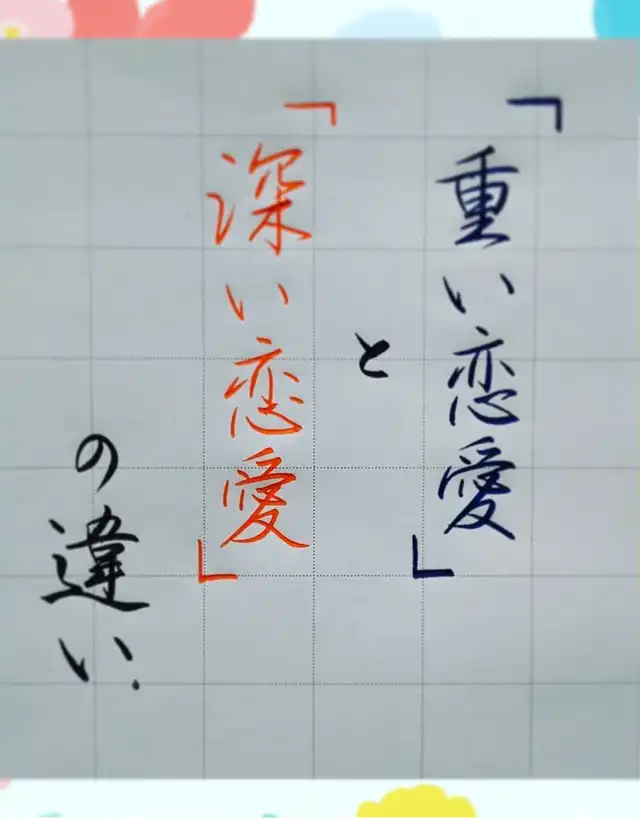 「重い恋愛」
と
「深い恋愛」
の違い.